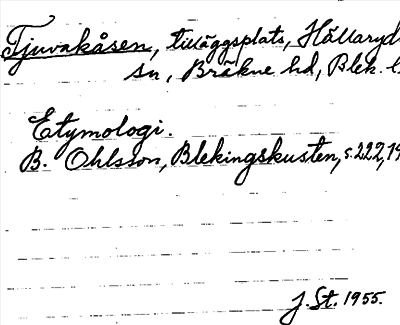 Tjuvakåsen, tilläggsplats, Hällaryd
sn, Bräkne hd, Blek. l
Etymologi.
B. Ohlsson, Blekingskusten, s. 222, 19
J. St. 1955.